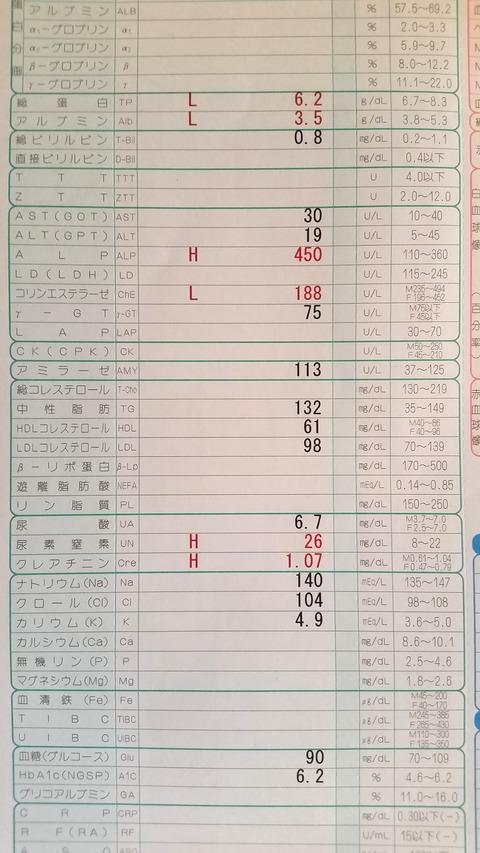 アルブミン ALB % 57.5〜69.2
α₁-グロブリン α₁ % 2.0〜3.3
α₂-グロブリン α₂ % 5.9〜9.7
β-グロブリン β % 8.0〜12.2
γ-グロブリン γ % 11.1〜22.0
総蛋白 TP L 6.2 g/dL 6.7〜8.3
アルブミン Alb L 3.5 g/dL 3.8〜5.3
総ビリルビン T-Bil 0.8 mg/dL 0.2〜1.1
直接ビリルビン D-Bil mg/dL 0.4以下
TTT TTT U 4.0以下
ZTT ZTT U 2.0〜12.0
AST(GOT) AST 30 U/L 10〜40
ALT(GPT) ALT 19 U/L 5〜45
ALP ALP H 450 U/L 110〜360
LD(LDH) LD U/L 115〜245
コリンエステラーゼ ChE L 188 U/L M235〜494 F196〜452
γ-GT γ-GT 75 U/L M75以下 F45以下
LAP LAP U/L 30〜70
CK(CPK) CK U/L M50〜250 F45〜210
アミラーゼ AMY 113 U/L 37〜125
総コレステロール T-Cho mg/dL 130〜219
中性脂肪 TG 132 mg/dL 35〜149
HDLコレステロール HDL 61 mg/dL M40〜86 F40〜96
LDLコレステロール LDL 98 mg/dL 70〜139
β-リポ蛋白 β-Lp mg/dL 170〜500
遊離脂肪酸 NEFA mEq/L 0.14〜0.85
リン脂質 PL mg/dL 150〜250
尿酸 UA 6.7 mg/dL M3.7〜7.0 F2.5〜7.0
尿素窒素 UN H 26 mg/dL 8〜22
クレアチニン Cre H 1.07 mg/dL M0.61〜1.04 F0.47〜0.79
ナトリウム(Na) Na 140 mEq/L 135〜147
クロール(Cl) Cl 104 mEq/L 98〜108
カリウム(K) K 4.9 mEq/L 3.6〜5.0
カルシウム(Ca) Ca mg/dL 8.6〜10.1
無機リン(P) P mg/dL 2.5〜4.6
マグネシウム(Mg) Mg mg/dL 1.8〜2.6
血清鉄(Fe) Fe μg/dL M45〜200 F40〜170
TIBC TIBC μg/dL M245〜385 F265〜430
UIBC UIBC μg/dL M110〜300 F135〜350
血糖(グルコース) Glu 90 mg/dL 70〜109
HbA1c(NGSP) A1C 6.2 % 4.6〜6.2
グリコアルブミン GA % 11.0〜16.0
CRP CRP mg/dL 0.30以下(-)
RF(RA) RF U/mL 15以下(-)
ASO ASO